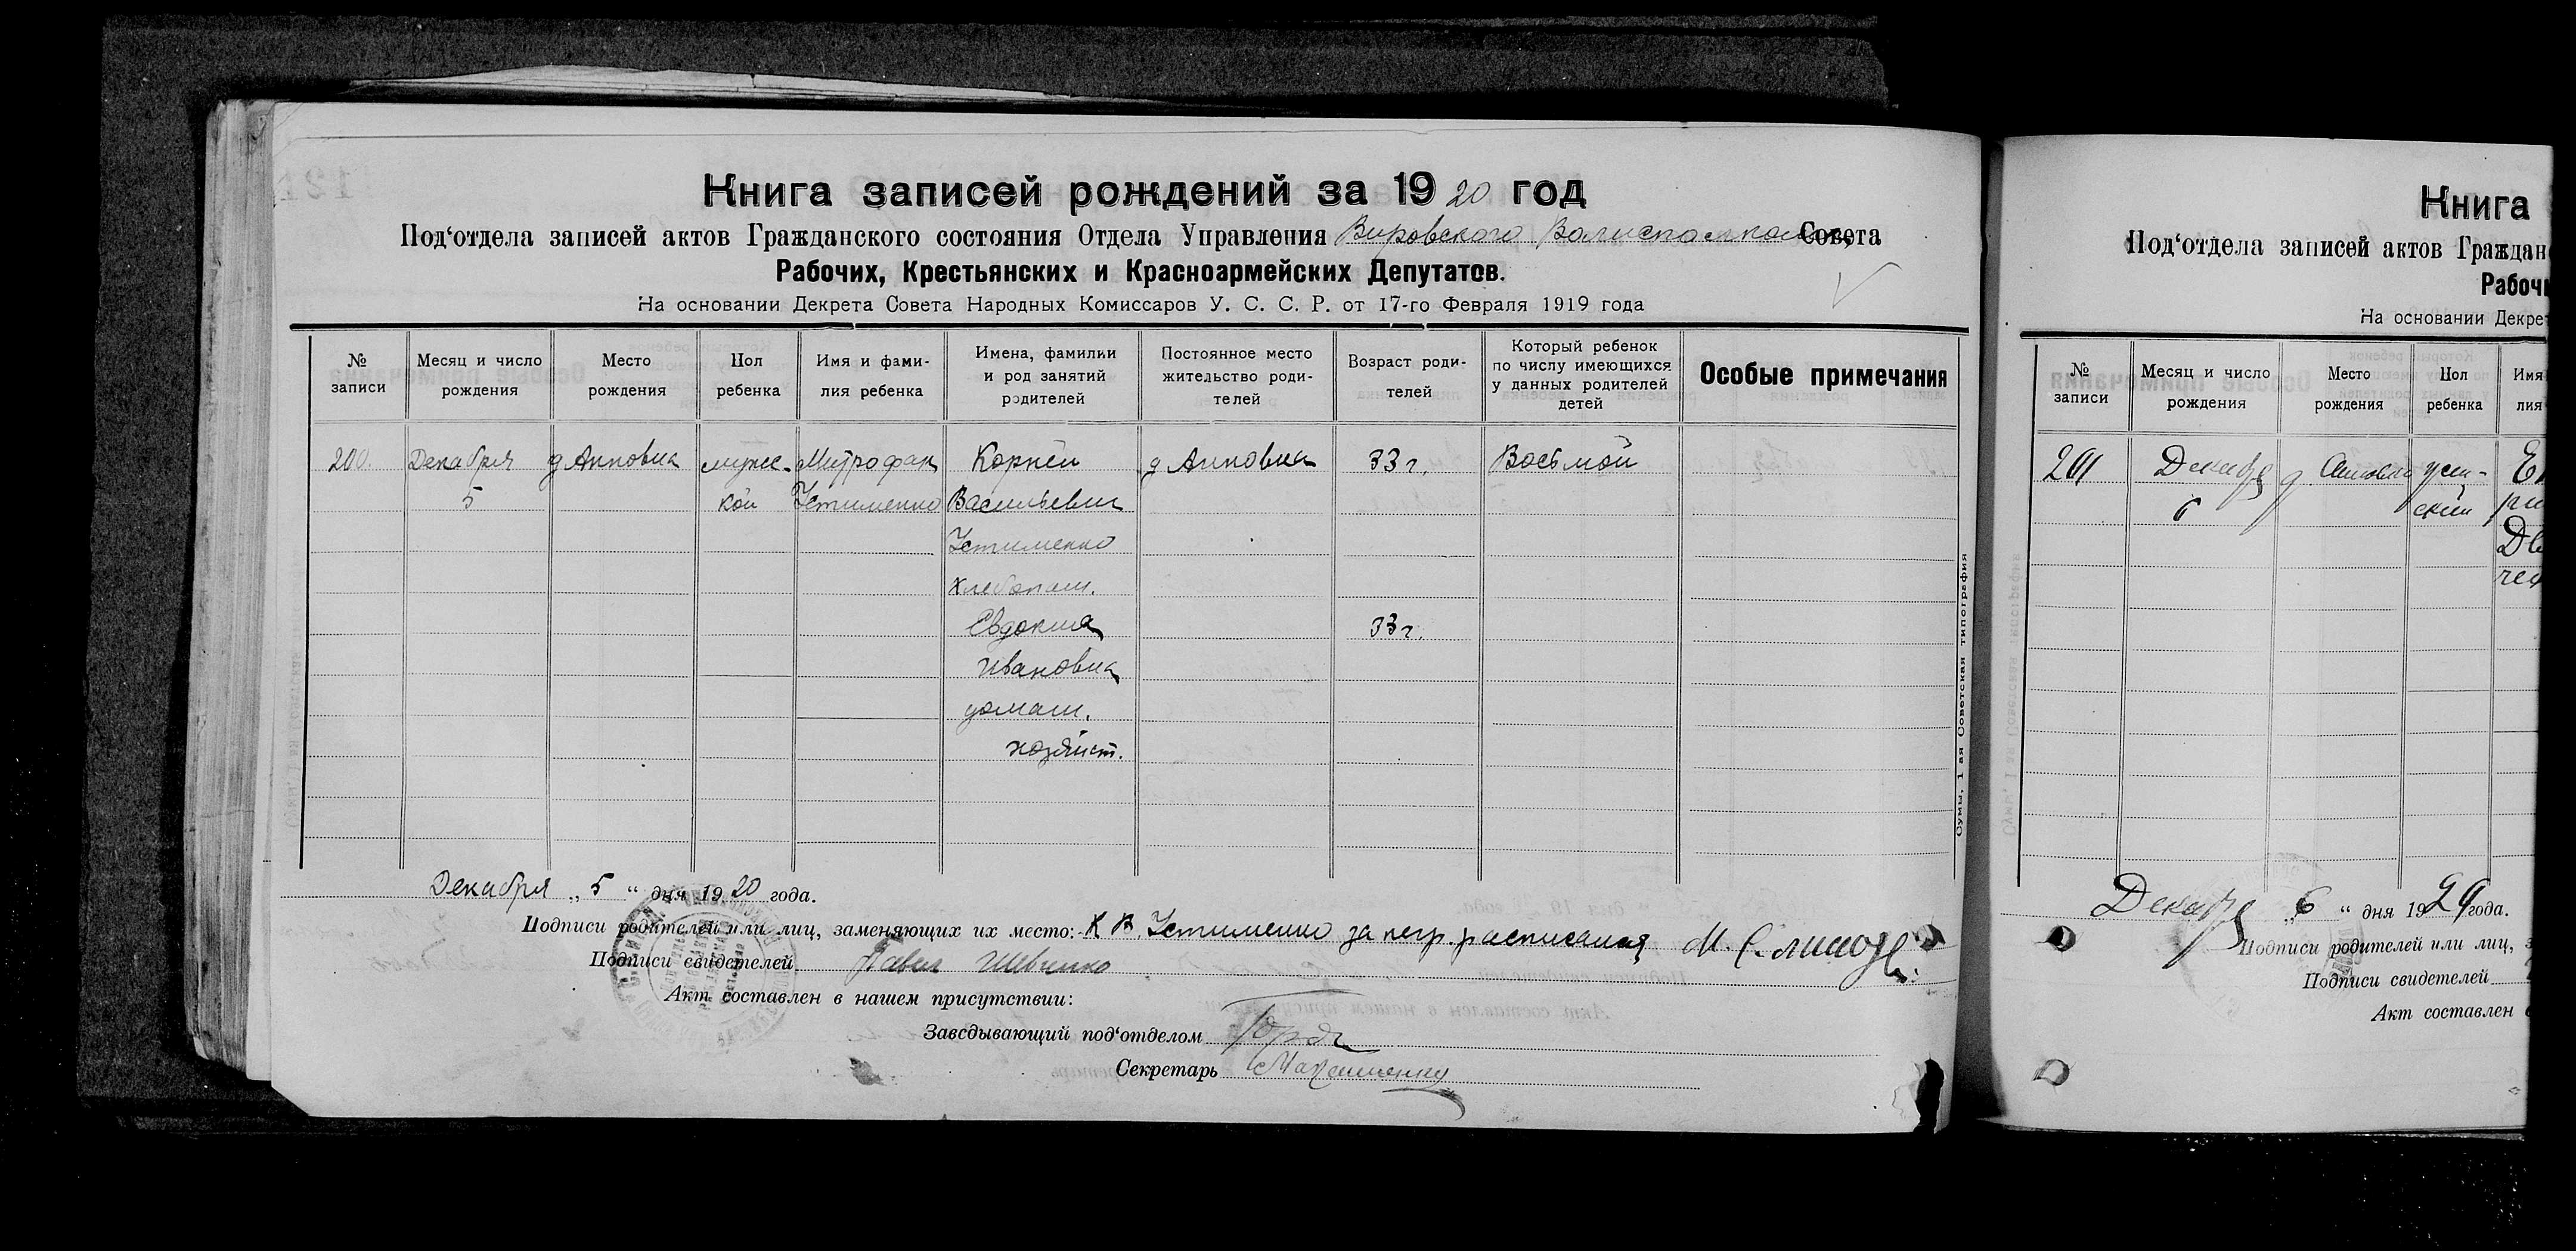 Книга записей рождений за 1920 год
Под'отдела записей актов Гражданского состояния Отдела Управления Вировского Волисполкома Совета
Рабочих, Крестьянских и Красноармейских Депутатов.
На основании Декрета Совета Народных Комиссаров У. С. С. Р. от 17-го Февраля 1919 года
№ записи
Месяц и число рождения
Место рождения
Пол ребенка
Имя и фами-лия ребенка
Имена, фамилии и род занятий родителей
Постоянное место жительство роди-телей
Возраст роди-телей
Который ребенок по числу имеющихся у данных родителей детей
Особые примечания
200. Декабря д Анновка мужс- Митрофан Корней д Анновка 33 г. Восьмой
5 кой Устименко Васильевич
Устименко
хлебопаш.
Евдокия 33 г.
Ивановна
домаш.
хозяйст.
Сумы, 1 ая Советская типография
Декабря „ 5 “ дня 1920 года.
Подписи родителей или лиц, заменяющих их место: К В. Устименко за негр. расписался М.
Подписи свидетелей Павел Шевченко
Акт составлен в нашем присутствии:
Заведывающий под'отделом
Секретарь
Книга
Под'отдела записей актов Граждан
Рабочи
На основании Декре
№ записи
Месяц и число рождения
Место рождения
Пол ребенка
Имя
лия
201 Декабря д
6
Декабря „ 6 “ дня 1920 года.
Подписи родителей или лиц,
Подписи свидетелей
Акт составлен